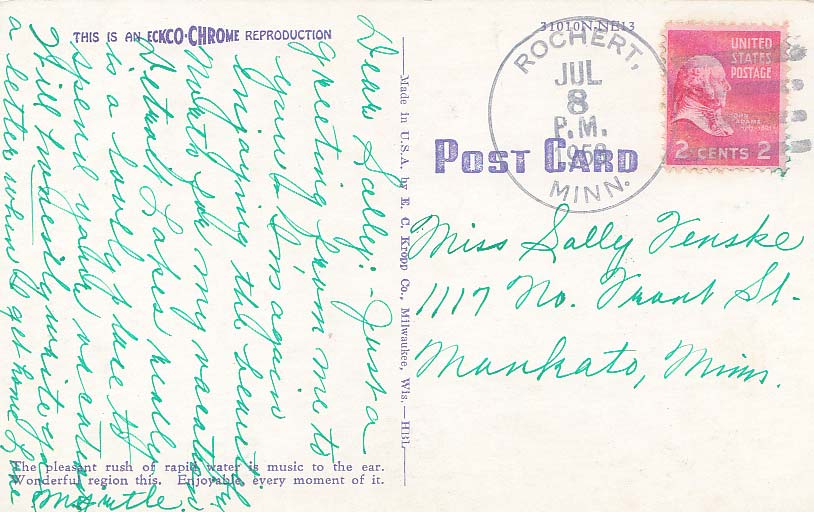 THIS IS AN ECKCO-CHROME REPRODUCTION
31010N-NE13
ROCHERT,
JUL
8
P.M.
MINN.
UNITED
STATES
POSTAGE
JOHN
ADAMS
2 CENTS 2
POST CARD
Made in U.S.A. by E. C. Kropp Co., Milwaukee, Wis.—HBL
Dear Sally:- Just a
greeting from me to
you. I'm again
enjoying the beautiful
North for my vacation.
Detroit Lakes really
is a lovely place to
spend your vacation
Will
write you
a letter when I get home. Love
Myrtle.
Miss Sally Venske
1117 No. Front St.
Mankato, Minn.
The pleasant rush of rapid water is music to the ear.
Wonderful region this. Enjoyable every moment of it.